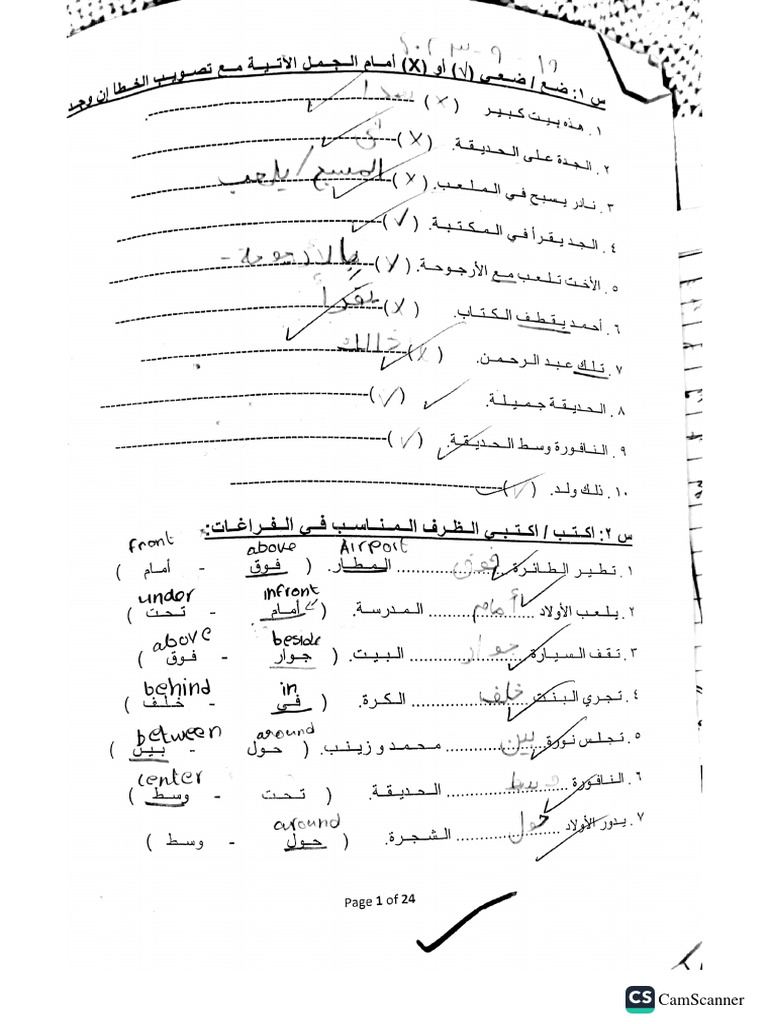 س ١: ضع / ضعي (√) أو (X) أمام الجمل الآتية مع تصويب الخطأ إن وجد
١. هذه بيت كبير (X) هذا
٢. الجدة على الحديقة. (X) في
٣. نادر يسبح في الملعب. (X) المسبح / يلعب
٤. الجد يقرأ في المكتبة. (√)
٥. الأخت تلعب مع الأرجوحة. (√) بالأرجوحة
٦. أحمد يقطف الكتاب. (X) يقرأ
٧. تلك عبد الرحمن. (X) ذلك
٨. الحديقة جميلة. (√)
٩. النافورة وسط الحديقة. (√)
١٠. ذلك ولد. (√)
س ٢: اكتب / اكتبي الظرف المناسب في الفراغات:
Airport above front
١. تطير الطائرة فوق المطار. ( فوق - أمام )
infront under
٢. يلعب الأولاد أمام المدرسة. ( أمام - تحت )
beside above
٣. تقف السيارة جوار البيت. ( جوار - فوق )
in behind
٤. تجري البنت خلف الكرة. ( في - خلف )
around between
٥. تجلس نورة بين محمد و زينب. ( حول - بين )
center
٦. النافورة وسط الحديقة. ( تحت - وسط )
around
٧. يدور الأولاد حول الشجرة. ( حول - وسط )
Page 1 of 24
CS CamScanner